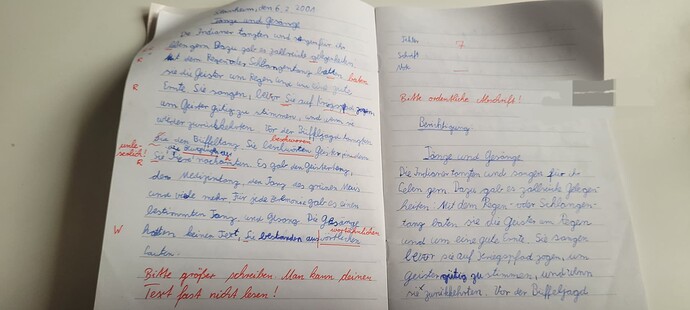 Mannheim, den 6.2.2001
Tänze und Gesänge
Die Indianer tanzten und sangen für ihr
Leben gern. Dazu gab es zahlreiche Gelegenheiten.
Mit dem Regen- oder Schlangentanz baten
sie die Geister um Regen und um eine gute
Ernte. Sie sangen, bevor Sie auf
um Geister gütig zu stimmen, und wenn sie
wieder zurückkehrten. Vor der Büffeljagd
sie den Büffeltanz. Sie beschwören Geister
Sie Tiere nachahmten. Es gab den Geistertanz,
den Medizintanz, den Tanz des grünen Mais
und viele mehr. Für jede Zeremonie gab es einen
bestimmten Tanz und Gesang. Die Gesänge
hatten keinen Text, Sie bestanden aus
Lauten.
baten
beschworen
unleserlich!
R
R
R
W
Bitte größer schreiben. Man kann deinen
Text fast nicht lesen!
Fehler 7
Schrift
Note
Bitte ordentliche Abschrift!
Berichtigung:
Tänze und Gesänge
Die Indianer tanzten und sangen für ihr
Leben gern. Dazu gab es zahlreiche Gelegen-
heiten. Mit dem Regen- oder Schlangen-
tanz baten sie die Geister um Regen
und um eine gute Ernte. Sie sangen
bevor sie auf Kriegspfad zogen, um
geister gütig zu stimmen, und wenn
sie zurückkehrten. Vor der Büffeljagd